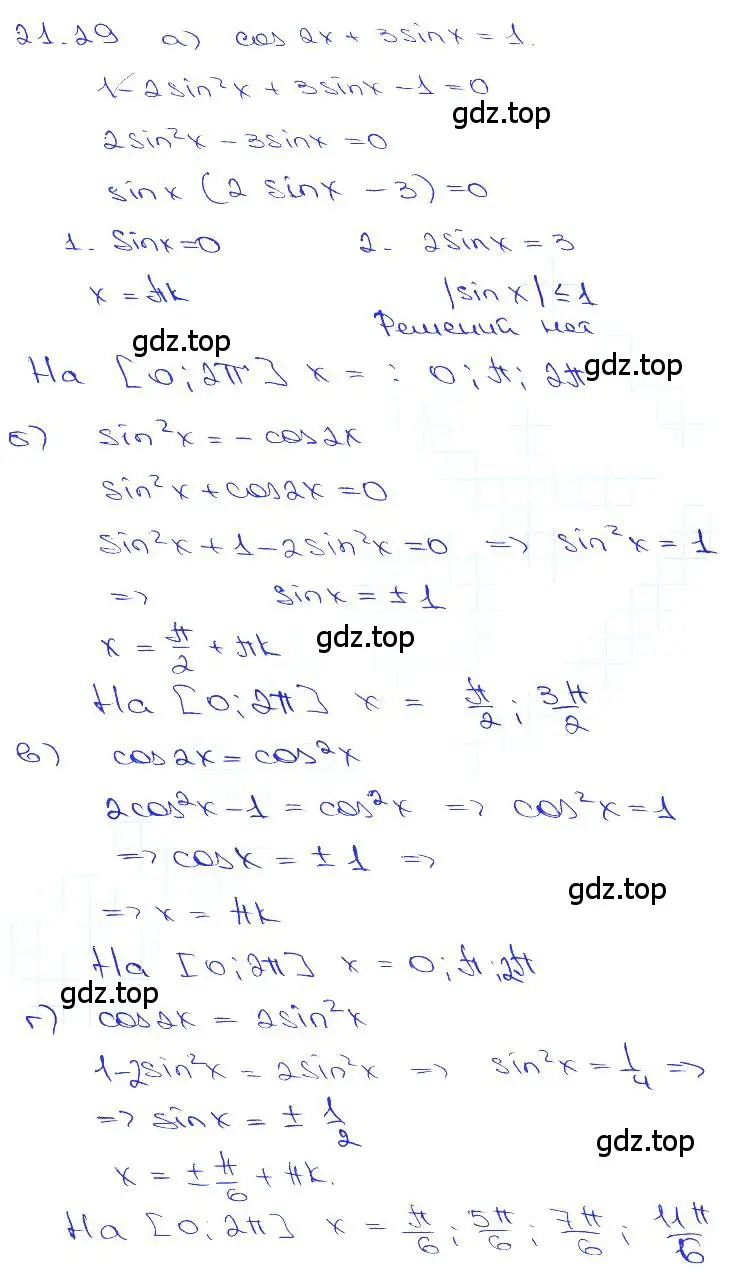 21.29 а) cos 2x + 3 sin x = 1.
1 - 2 sin²x + 3 sin x - 1 = 0
gdz.top
2 sin²x - 3 sin x = 0
sin x (2 sin x - 3) = 0
1. Sin x = 0 2. 2 sin x = 3
x = πk |sin x| ≤ 1
Решений нет
gdz.top
На [0; 2π] x = : 0; π; 2π gdz.top
б) sin²x = - cos 2x
sin²x + cos 2x = 0
sin²x + 1 - 2 sin²x = 0 => sin²x = 1
=> sin x = ± 1
x = π/2 + πk gdz.top
На [0; 2π] x = π/2; 3π/2
в) cos 2x = cos²x
2 cos²x - 1 = cos²x => cos²x = 1
=> cos x = ± 1 =>
gdz.top
=> x = πk
На [0; 2π] x = 0; π; 2π
gdz.top
г) cos 2x = 2 sin²x
1 - 2 sin²x = 2 sin²x => sin²x = 1/4 =>
=> sin x = ± 1/2
gdz.top
x = ± π/6 + πk.
На [0; 2π] x = π/6; 5π/6; 7π/6; 11π/6